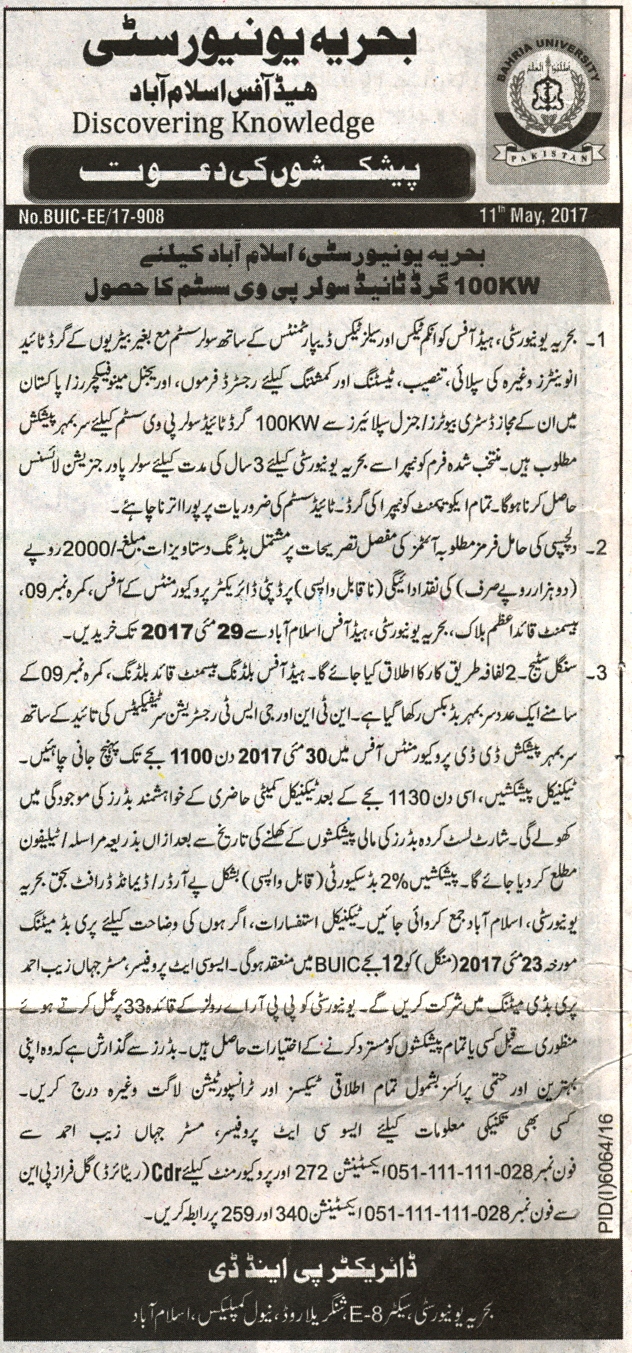 بحریہ یونیورسٹی
ہیڈ آفس اسلام آباد
Discovering Knowledge
BAHRIA UNIVERSITY
PAKISTAN
پیشکشوں کی دعوت
No.BUIC-EE/17-908
11th May, 2017
بحریہ یونیورسٹی، اسلام آباد کیلئے
100KW گرڈ ٹائیڈ سولر پی وی سسٹم کا حصول
1۔ بحریہ یونیورسٹی، ہیڈ آفس کو انکم ٹیکس اور سیلز ٹیکس ڈیپارٹمنٹس کے ساتھ سولر سسٹم مع بغیر بیٹریوں کے گرڈ ٹائیڈ
انوینٹرز وغیرہ کی سپلائی، تنصیب، ٹیسٹنگ اور کمشننگ کیلئے رجسٹرڈ فرموں، اوریجنل مینوفیکچررز/ پاکستان
میں ان کے مجاز ڈسٹری بیوٹرز/ جنرل سپلائیرز سے 100KW گرڈ ٹائیڈ سولر پی وی سسٹم کیلئے سربمہر پیشکش
مطلوب ہیں۔ منتخب شدہ فرم کو نیپرا سے بحریہ یونیورسٹی کیلئے 3 سال کی مدت کیلئے سولر پاور جنریشن لائسنس
حاصل کرنا ہوگا۔ تمام ایکوپمنٹ کو نیپرا کی گرڈ۔ ٹائیڈ سسٹم کی ضروریات پر پورا اترنا چاہئے۔
2۔ دلچسپی کی حامل فرمز مطلوبہ آئٹمز کی مفصل تصریحات پر مشتمل بڈنگ دستاویزات مبلغ -/2000 روپے
(دو ہزار روپے صرف) کی نقد ادائیگی (ناقابل واپسی) پر ڈپٹی ڈائریکٹر پروکیورمنٹس کے آفس، کمرہ نمبر 09،
بیسمنٹ قائداعظم بلاک، بحریہ یونیورسٹی، ہیڈ آفس اسلام آباد سے 29 مئی 2017 تک خریدیں۔
3۔ سنگل سٹیج۔ 2 لفافہ طریق کار کا اطلاق کیا جائے گا۔ ہیڈ آفس بلڈنگ بیسمنٹ قائد بلڈنگ، کمرہ نمبر 09 کے
سامنے ایک عدد سربمہر بڈ بکس رکھا گیا ہے۔ این ٹی این اور جی ایس ٹی رجسٹریشن سرٹیفکیٹس کی تائید کے ساتھ
سربمہر پیشکش ڈی ڈی پروکیورمنٹس آفس میں 30 مئی 2017 دن 1100 بجے تک پہنچ جانی چاہئیں۔
ٹیکنیکل پیشکشیں، اسی دن 1130 بجے کے بعد ٹیکنیکل کمیٹی حاضری کے خواہشمند بڈرز کی موجودگی میں
کھولے گی۔ شارٹ لسٹ کردہ بڈرز کی مالی پیشکشوں کے کھلنے کی تاریخ سے بعد ازاں بذریعہ مراسلہ/ ٹیلیفون
مطلع کر دیا جائے گا۔ پیشکشیں 2% بڈ سکیورٹی (قابل واپسی) بشکل پے آرڈر/ ڈیمانڈ ڈرافٹ بحق بحریہ
یونیورسٹی، اسلام آباد جمع کروائی جائیں۔ ٹیکنیکل استفسارات، اگر ہوں کی وضاحت کیلئے پری بڈ میٹنگ
مورخہ 23 مئی 2017 (منگل) کو 12 بجے BUIC میں منعقد ہوگی۔ ایسوسی ایٹ پروفیسر، مسٹر جہاں زیب احمد
پری بڈی میٹنگ میں شرکت کریں گے۔ یونیورسٹی کو پی پی آر اے رولز کے قائدہ 33 پر عمل کرتے ہوئے
منظوری سے قبل کسی یا تمام پیشکشوں کو مسترد کرنے کے اختیارات حاصل ہیں۔ بڈرز سے گذارش ہے کہ وہ اپنی
بہترین اور حتمی پرائسز بشمول تمام اطلاقی ٹیکسز اور ٹرانسپورٹیشن لاگت وغیرہ درج کریں۔
کسی بھی تکنیکی معلومات کیلئے ایسوسی ایٹ پروفیسر، مسٹر جہاں زیب احمد سے
فون نمبر 051-111-111-028 ایکسٹینشن 272 اور پروکیورمنٹ کیلئے Cdr (ریٹائرڈ) گل فراز پی این
سے فون نمبر 051-111-111-028 ایکسٹینشن 340 اور 259 پر رابطہ کریں۔
PID(I)6064/16
ڈائریکٹر پی اینڈ ڈی
بحریہ یونیورسٹی، سیکٹر E-8، شنگریلا روڈ، نیول کمپلیکس، اسلام آباد